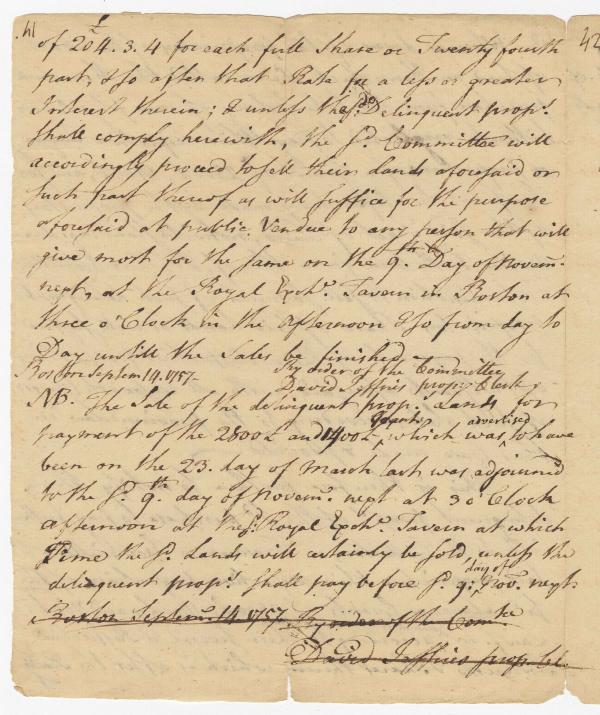 41
42
of £204.3.4 for each full Share or Twenty fourth
part, & so after that Rate for a less or greater
Interest therein; & unless the sd. Delinquent propr.
shall comply herewith, the sd. Committee will
accordingly proceed to sell their Lands aforesaid or
such part thereof as will suffice for the purpose
aforesaid at public Vendue to any person that will
give most for the same on the 9th. Day of Novemr.
next, at the Royal Exchr. Tavern in Boston at
three o'Clock in the afternoon & so from day to
Day untill the Sales be finished
Boston Septem 14. 1757- By order of the Committee
David Jeffries propr Clerk
NB. The Sale of the delinquent propr. Lands for
payment of the 2800£ and 1400£ Grants, which was advertised to have
been on the 23. day of March last was adjourned
to the sd. 9th. day of Novemr. next at 3 o'Clock
afternoon at the sd. Royal Exchr. Tavern at which
Time the sd. Lands will certainly be sold unless the
delinquent propr. shall pay before sd. 9. day of Novr. next
Boston Septemr. 14 1757 By order of the Comtee
David Jeffries prop. Cl.